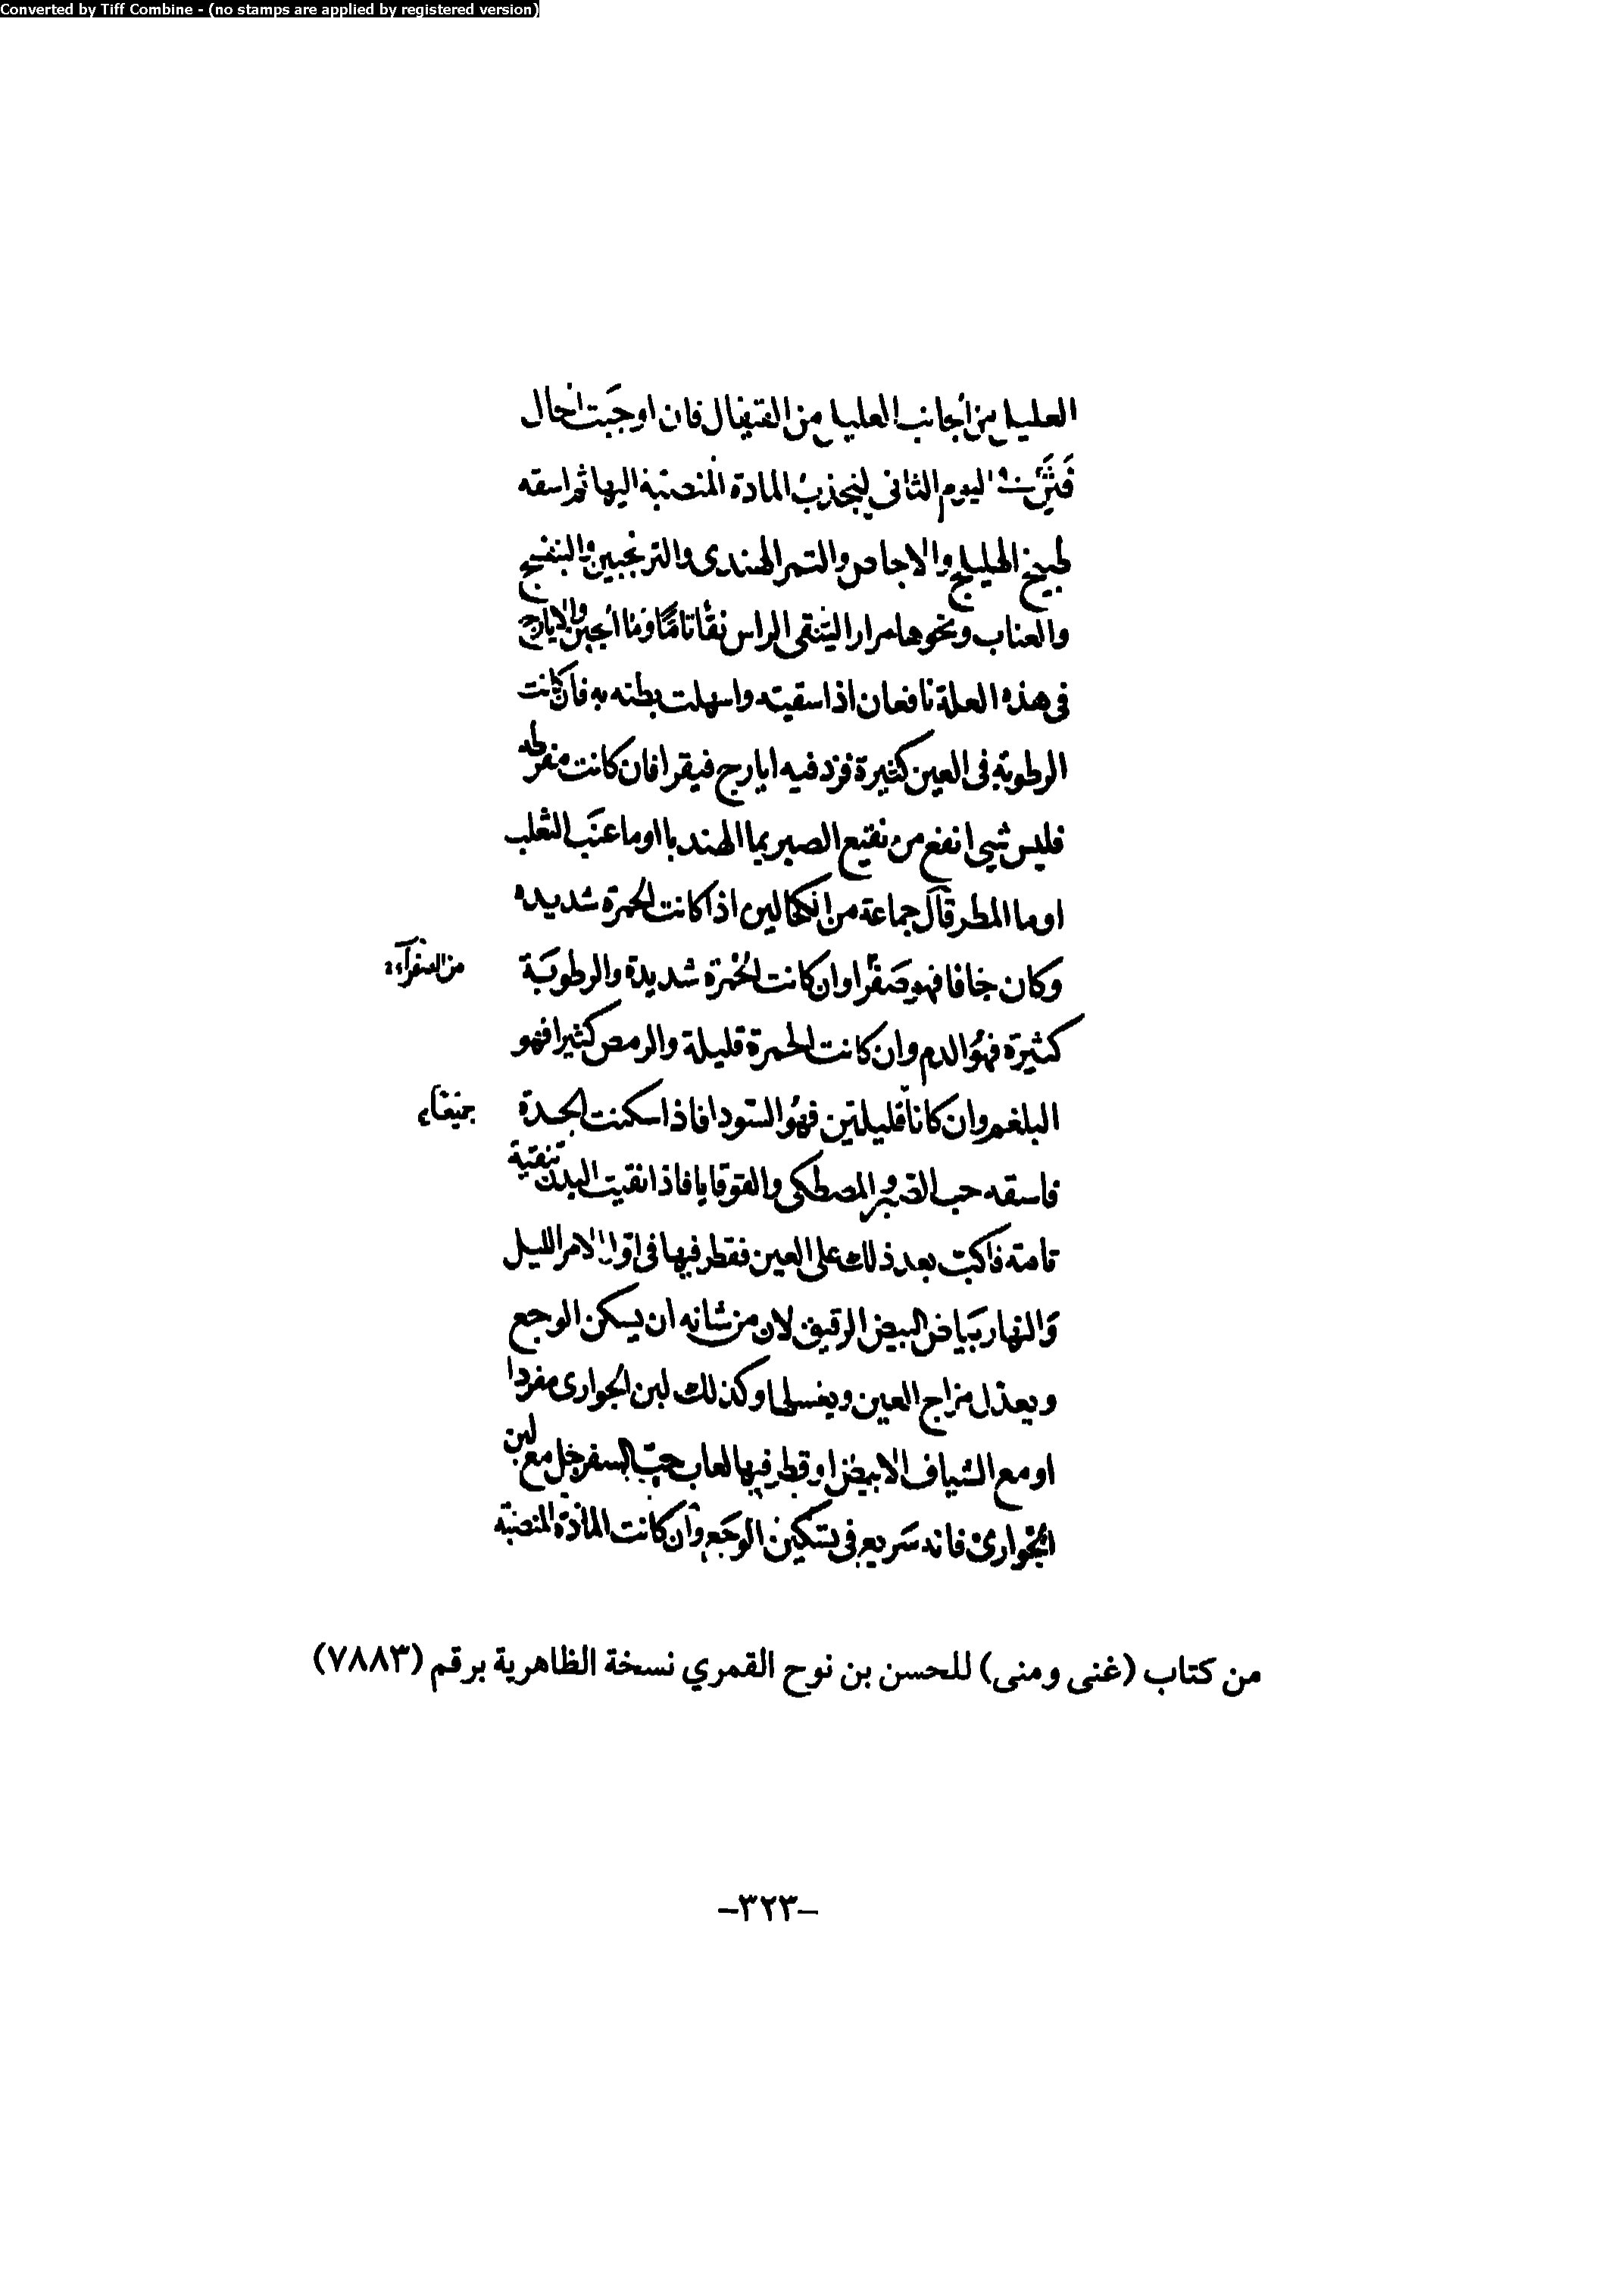 Converted by Tiff Combine - (no stamps are applied by registered version)
العليل من الجانب العليل من القيفال فان اوجبت الحال
فثن فى اليوم الثانى لينجذب المادة المنصبة اليها ثم اسقه
طبيخ الهليلج والاجاص والتمر الهندى والترنجبين والبنفسج
والعناب ونحوها مرارا لتنقى الراس نقأ تامًا وما الجبن والايارج
فى هذه العلة نافعان اذا سقيته واسهلت بطنه به فان كانت
الرطوبة فى العين كثيرة فزد فيه ايارج فيقرا فان كانت مفرطه
فليس شيى انفع من نقيع الصبر بما الهندبا اوما عنب الثعلب
اوما المطر قال جماعة من الكحالين اذا كانت الحمرة شديده
وكان جافا فهو صفرا وان كانت الحمرة شديدة والرطوبة
من الصفرآء
كثيرة فهو الدم وان كانت الحمرة قليلة والرمص كثيرا فهو
البلغم وان كانا قليلتين فهو السودا فاذا سكنت الحدة
جميعًا
فاسقه حب الصبر والمصطكى والقوقايا فاذا نقيت البدن تنقية
تامة فاكبّ بعد ذلك على العين فقطر فيها فى اوّل الامر الليل
والنهار بياض البيض الرقيق لان من شانه ان يسكن الوجع
ويعدل مزاج العين ويغسلها وكذلك لبن الجوارى مفردا
او مع الشياف الابيض او قطر فيها لعاب حبّ السفرجل مع لبن
الجوارى فانه سريع فى تسكين الوجع وان كانت المادّة المنصبّة
من كتاب (غنى ومنى) للحسن بن نوح القمري نسخة الظاهرية برقم (٧٨٨٣)
–٣٢٣–